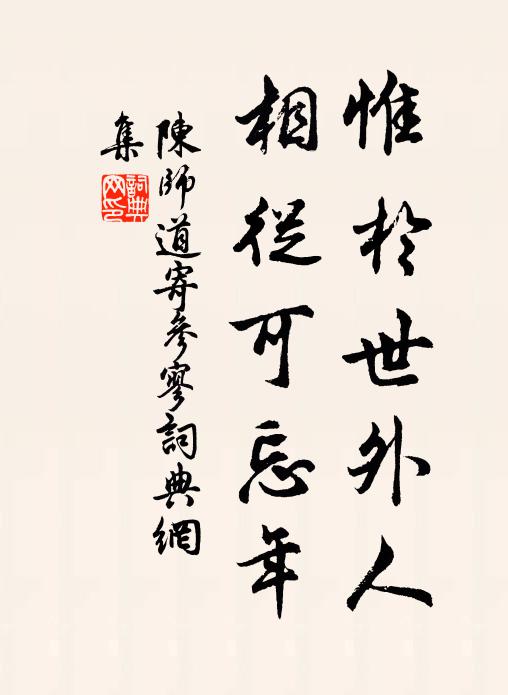 惟於世外人
相從可忘年
陳師道寄參寥詞典網
集
詞典
网印